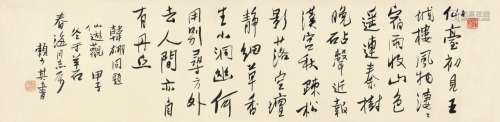 仙臺初見五
城樓風物淒淒
宿雨收山色
遥連秦樹
晚砧聲近報
漢宮秋疎松
影落空壇
静細草香
生小洞幽何
用别尋方外
去人間亦自
有丹丘
韓翃同題
仙遊觀 甲子
冬于羊石
春海同志
賴少其書